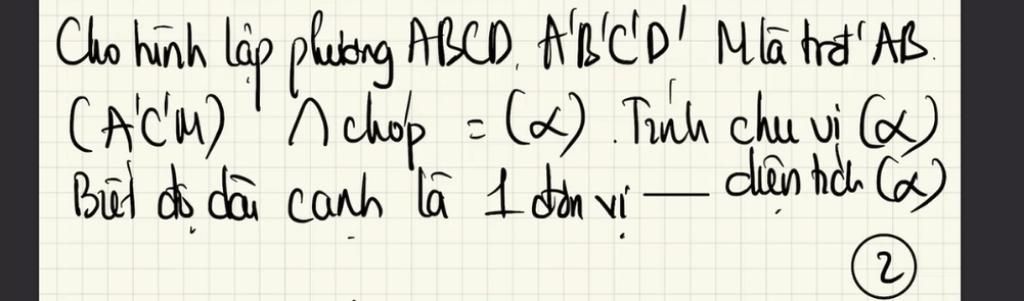 Cho hình lập phương ABCD. A'B'C'D' M là trđ AB.
(A'C'M) ∩ chóp = (α). Tính chu vi (α)
Biết độ dài cạnh là 1 đơn vị — diện tích (α)
2